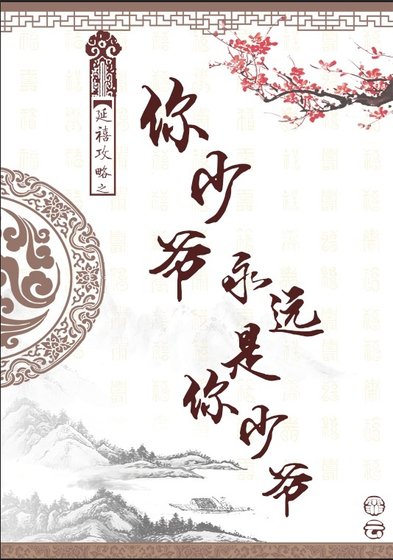 延禧攻略之
你少爷
永远是你少爷
云